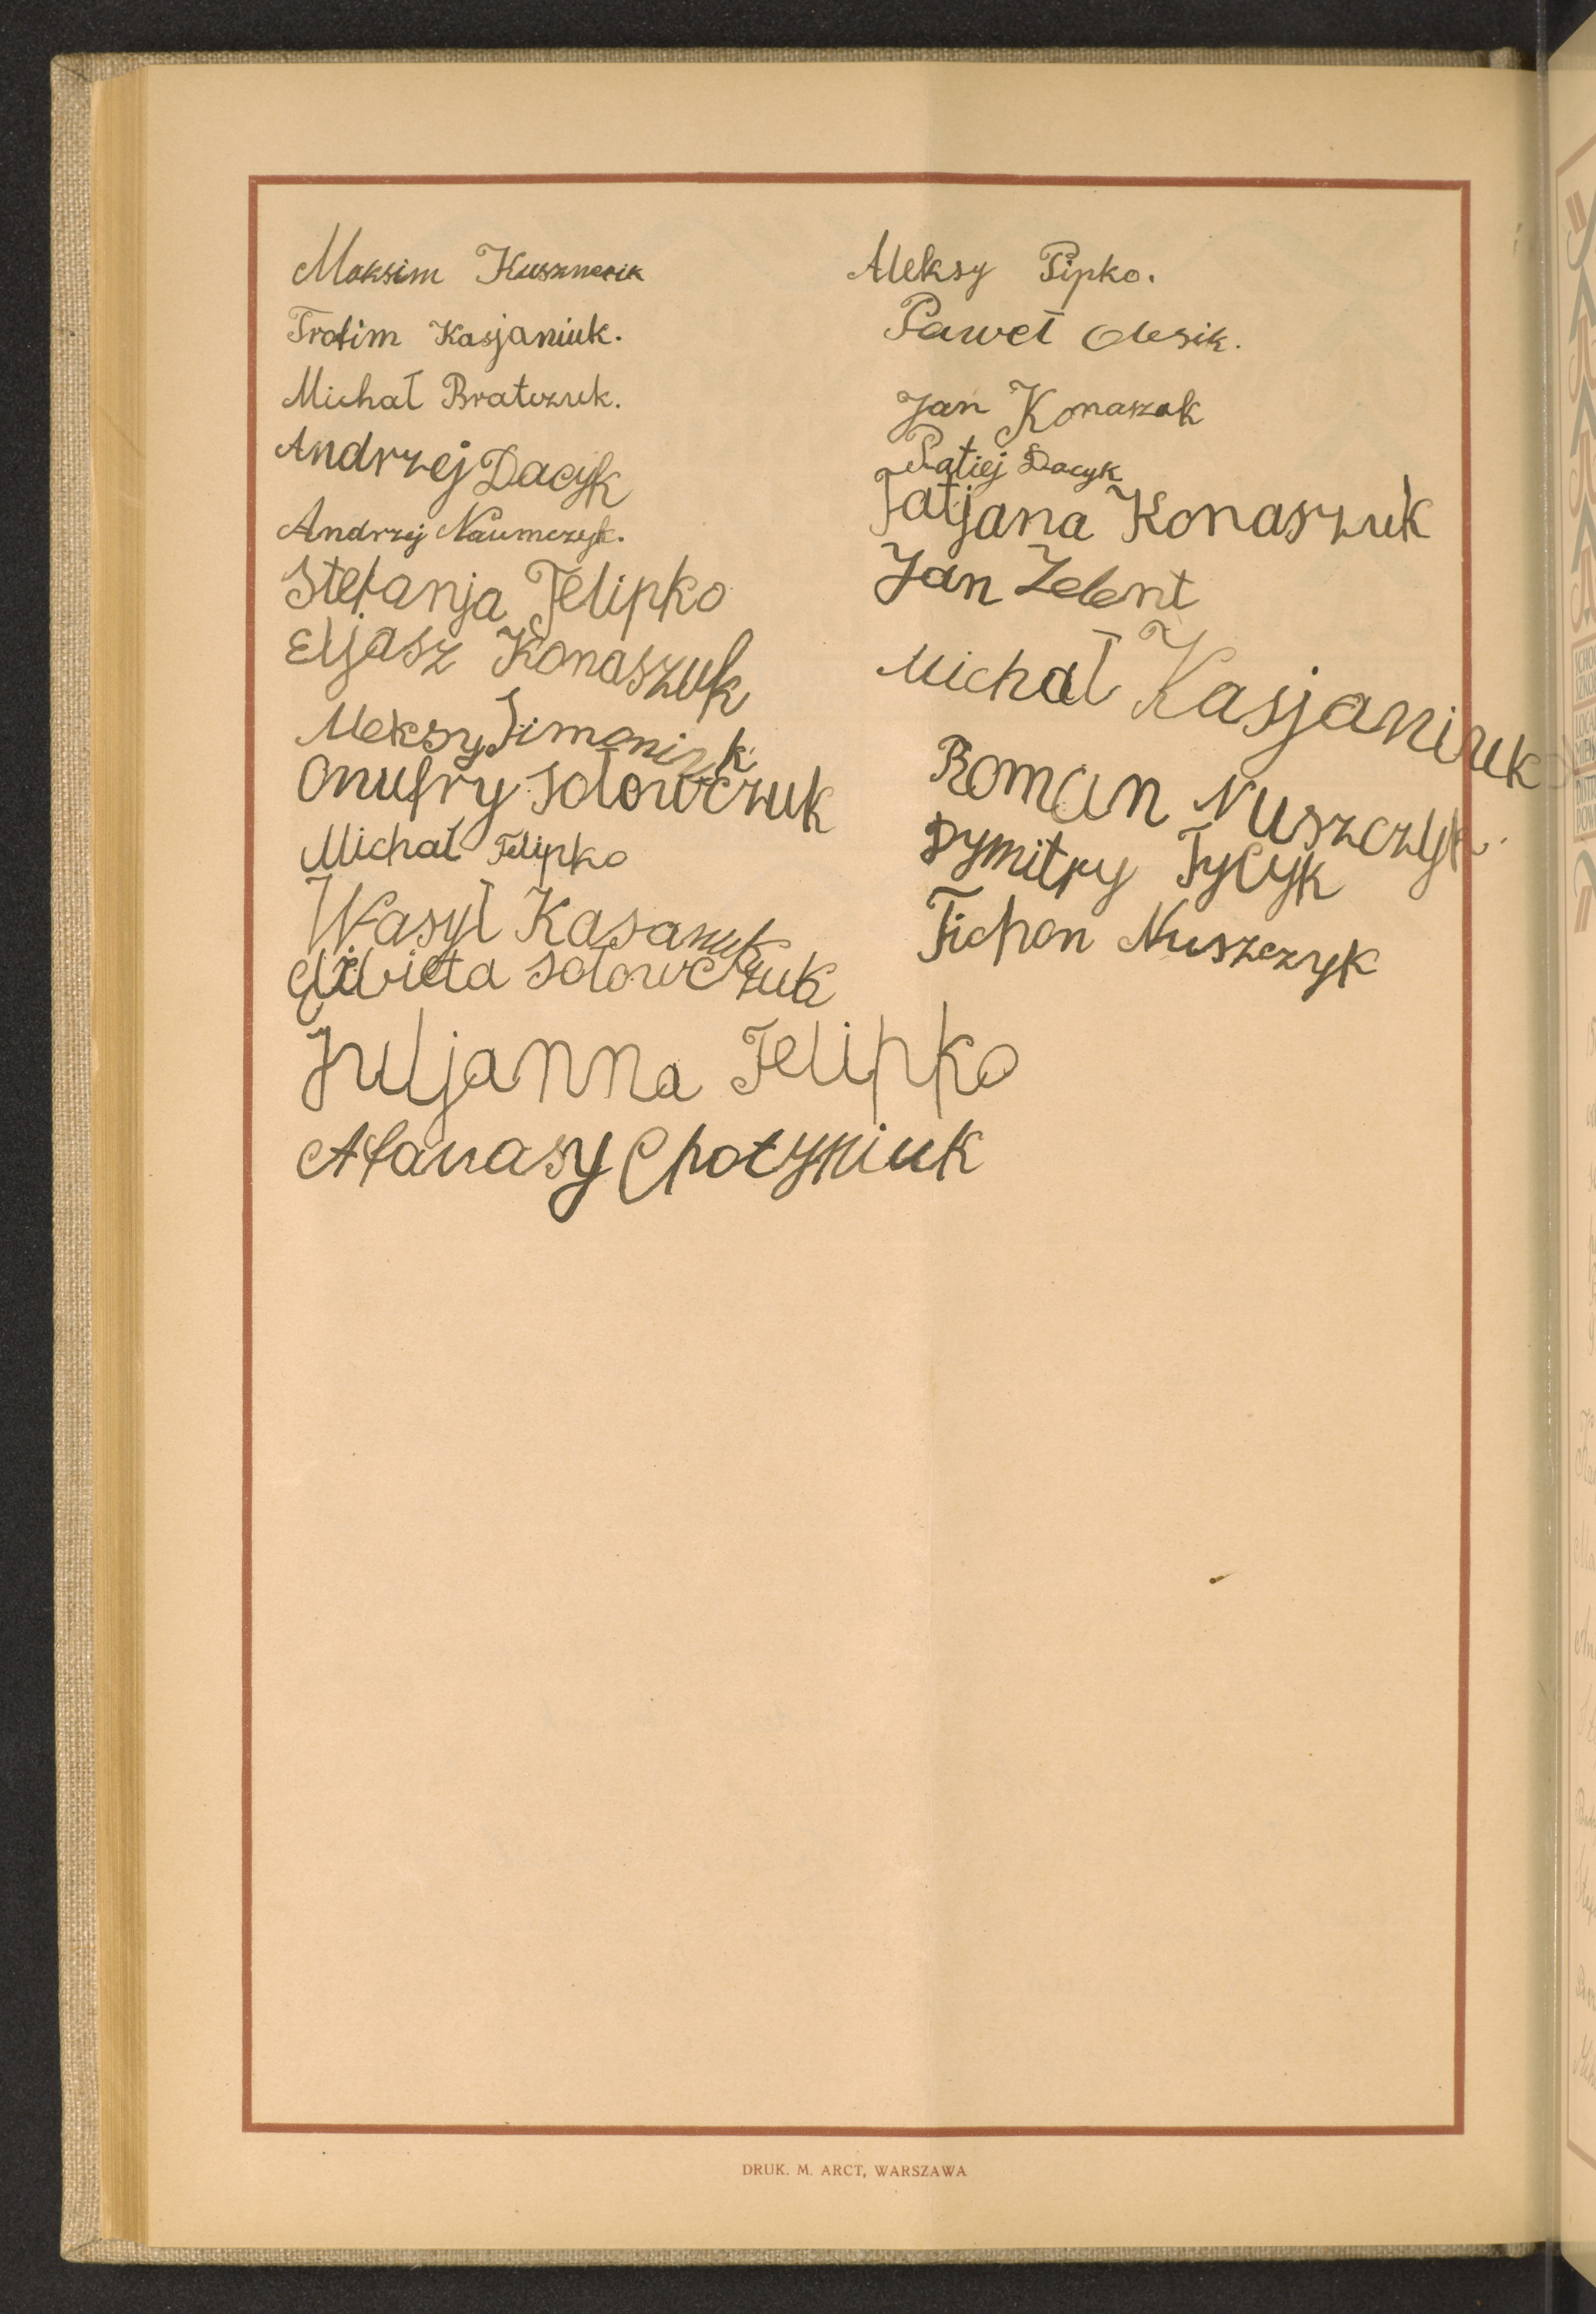 Maksim Kusznerik
Trofim Kasjaniuk.
Michał Bratczuk.
Andrzej Dacyk
Andrzej Naumczyk.
Stefanja Felipko
Eljasz Konaszuk
Aleksy Simoniuk
Onufry Sołowczuk
Michał Felipko
Wasyl Kasanuk
Elżbieta Sołowczuk
Juljanna Felipko
Afanasy Chotyniuk
Aleksy Pipko.
Paweł Olesik.
Jan Konaszuk
Dacyk
Tatjana Konaszuk
Jan Zelent
Michał Kasjaniuk
Roman Nuszczyk.
Dymitry Tycyk
Tichon Nuszczyk
DRUK. M. ARCT, WARSZAWA